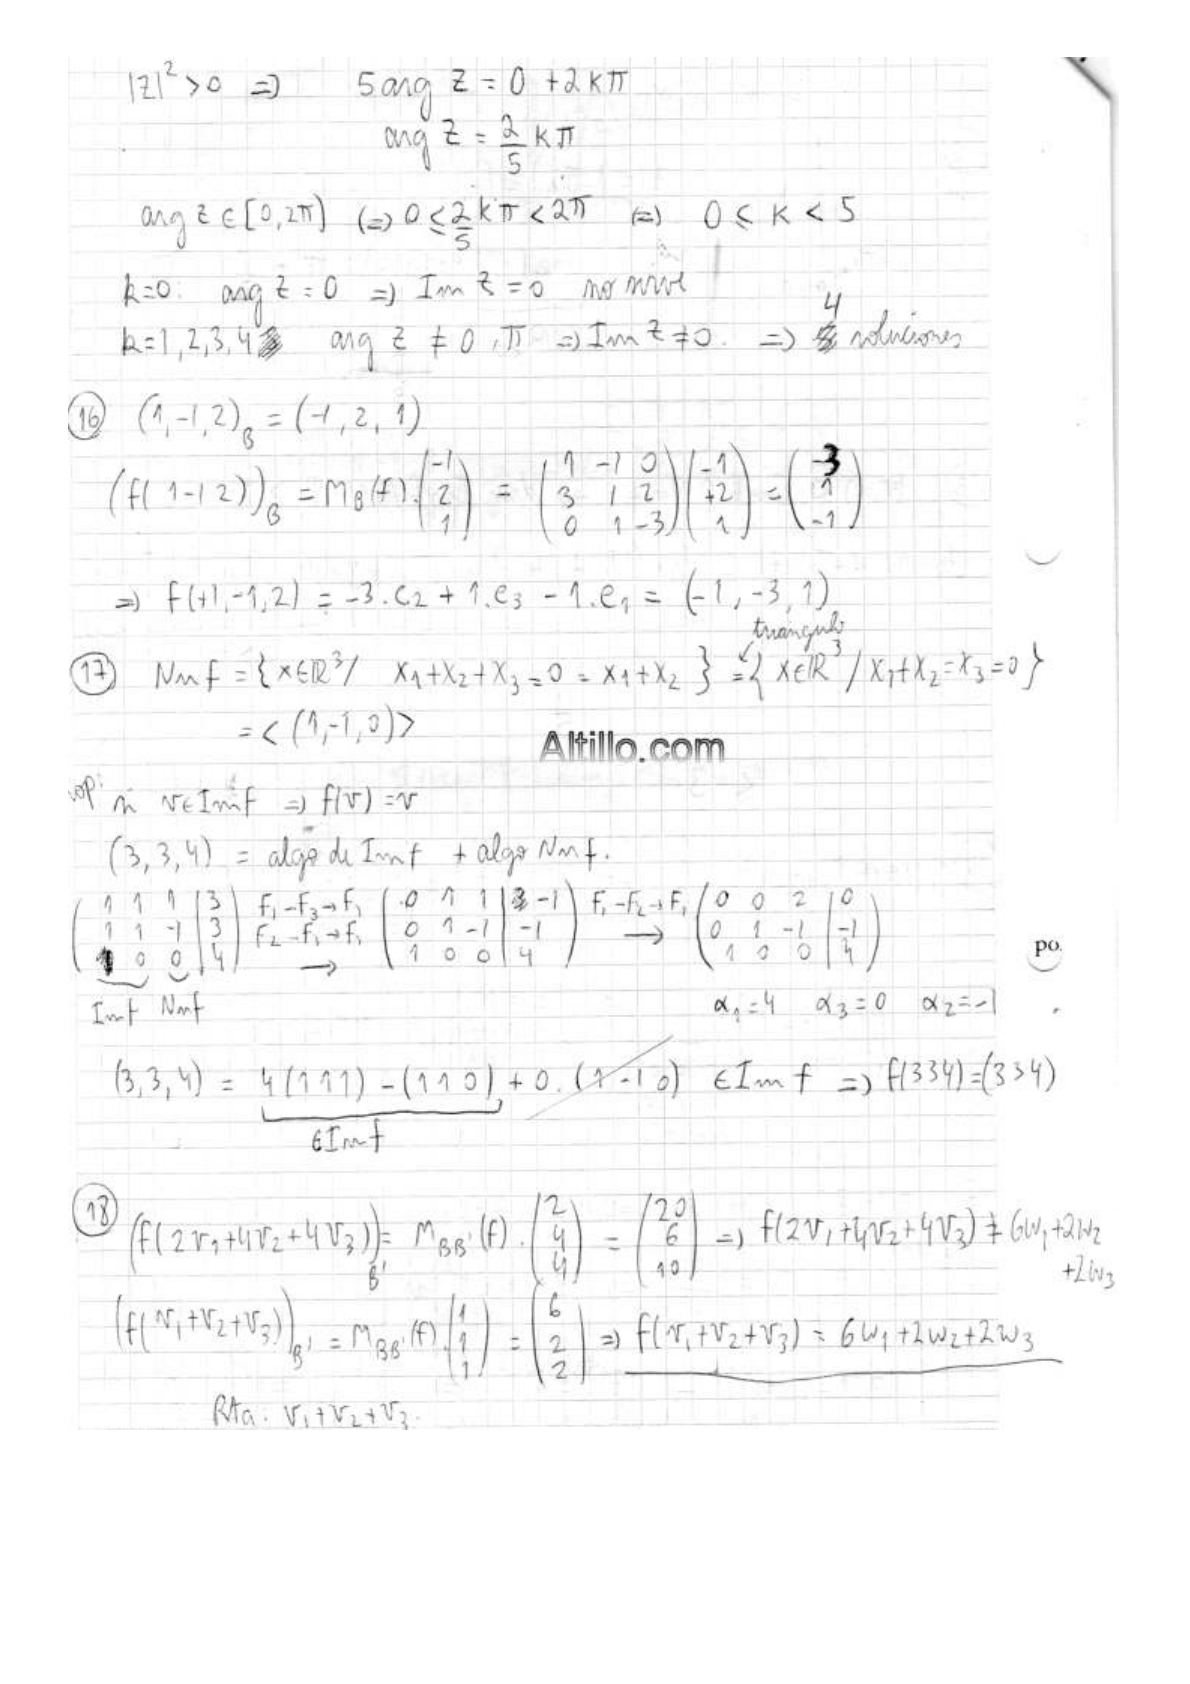 |Z|² > 0 => 5 arg Z = 0 + 2kπ
arg Z = 2/5 kπ
arg Z ∈ [0,2π) (=) 0 ≤ 2/5 kπ < 2π (=) 0 ≤ k < 5
k=0: arg Z = 0 => Im Z = 0 no sirve
k=1,2,3,4 arg Z ≠ 0, π => Im Z ≠ 0. => 4 soluciones
(16) (1,-1,2)_B = (-1, 2, 1)
(f(1 -1 2))_B = M_B(f) · (-1; 2; 1) = (1 -1 0; 3 1 2; 0 1 -3)(-1; +2; 1) = (-3; 1; -1)
=> f(+1,-1,2) = -3.e₂ + 1.e₃ - 1.e₁ = (-1, -3, 1)
triangulo
(17) Nu f = {x∈ℝ³/ x₁+x₂+x₃=0=x₁+x₂} = {x∈ℝ³/x₁+x₂=x₃=0}
= <(1,-1,0)>
Altillo.com
rop: si v∈Imf => f(v)=v
(3,3,4) = algo de Imf + algo Nuf.
(1 1 1 | 3; 1 1 -1 | 3; 1 0 0 | 4) F₁-F₃→F₁ F₂-F₁→F₁ → (0 1 1 | -1; 0 1 -1 | -1; 1 0 0 | 4) F₁-F₂→F₁ → (0 0 2 | 0; 0 1 -1 | -1; 1 0 0 | 4)
po.
Imf Nuf α₁=4 α₃=0 α₂=-1
(3,3,4) = 4(1 1 1) - (1 1 0) + 0.(1 -1 0) ∈Im f => f(334)=(334)
∈Imf
(18) (f(2v₁+4v₂+4v₃))_B' = M_BB'(f) · (2; 4; 4) = (20; 6; 10) => f(2v₁+4v₂+4v₃) ≠ 6w₁+2w₂
+2w₃
(f(v₁+v₂+v₃))_B' = M_BB'(f) (1; 1; 1) = (6; 2; 2) => f(v₁+v₂+v₃) = 6w₁+2w₂+2w₃
Rta: v₁+v₂+v₃.